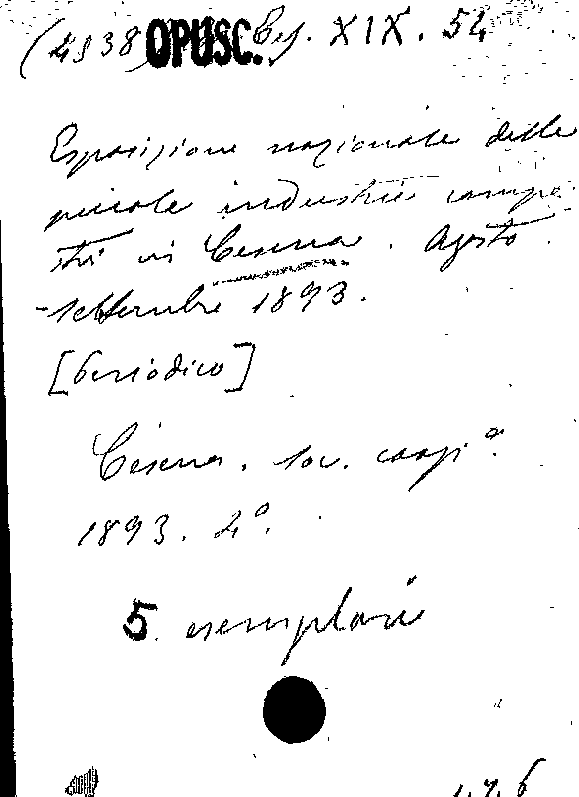 (4938) OPUSC. Ces. XIX. 54
Esposizione nazionale delle
piccole industrie campe-
stri in Cesena. Agosto
-settembre 1893.
[Periodico]
Cesena. Soc. coop.a
1893. 4°.
5 esemplari
1.7.6